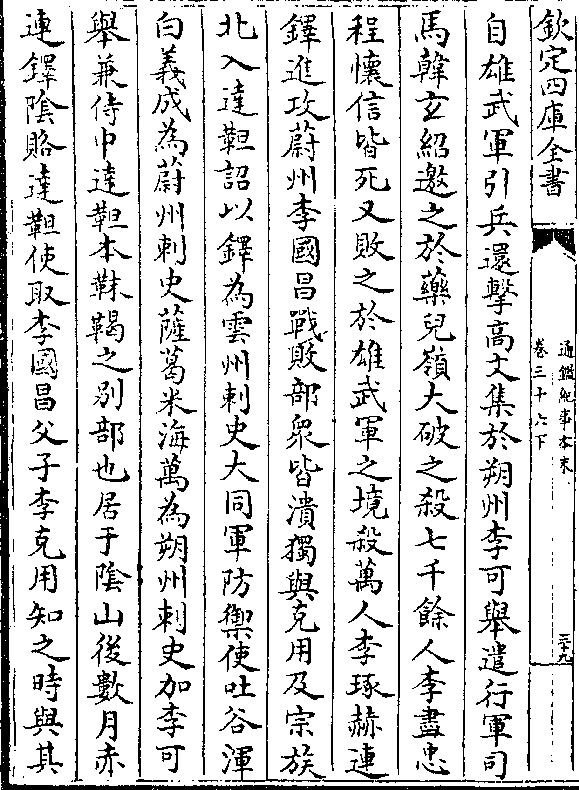 欽定四庫全書
通鑑紀事本末
卷三十六下
三十九
自雄武軍引兵還擊高文集於朔州李可舉遣行軍司
馬韓玄紹邀之於藥兒嶺大破之殺七千餘人李盡忠
程懷信皆死又敗之於雄武軍之境殺萬人李琢赫連
鐸進攻蔚州李國昌戰敗部衆皆潰獨與克用及宗族
北入達靼詔以鐸為雲州刺史大同軍防禦使吐谷渾
白義成為蔚州刺史薩葛米海萬為朔州刺史加李可
舉兼侍中達靼本靺鞨之别部也居于隂山後數月赤
連鐸隂賂達靼使取李國昌父子李克用知之時與其